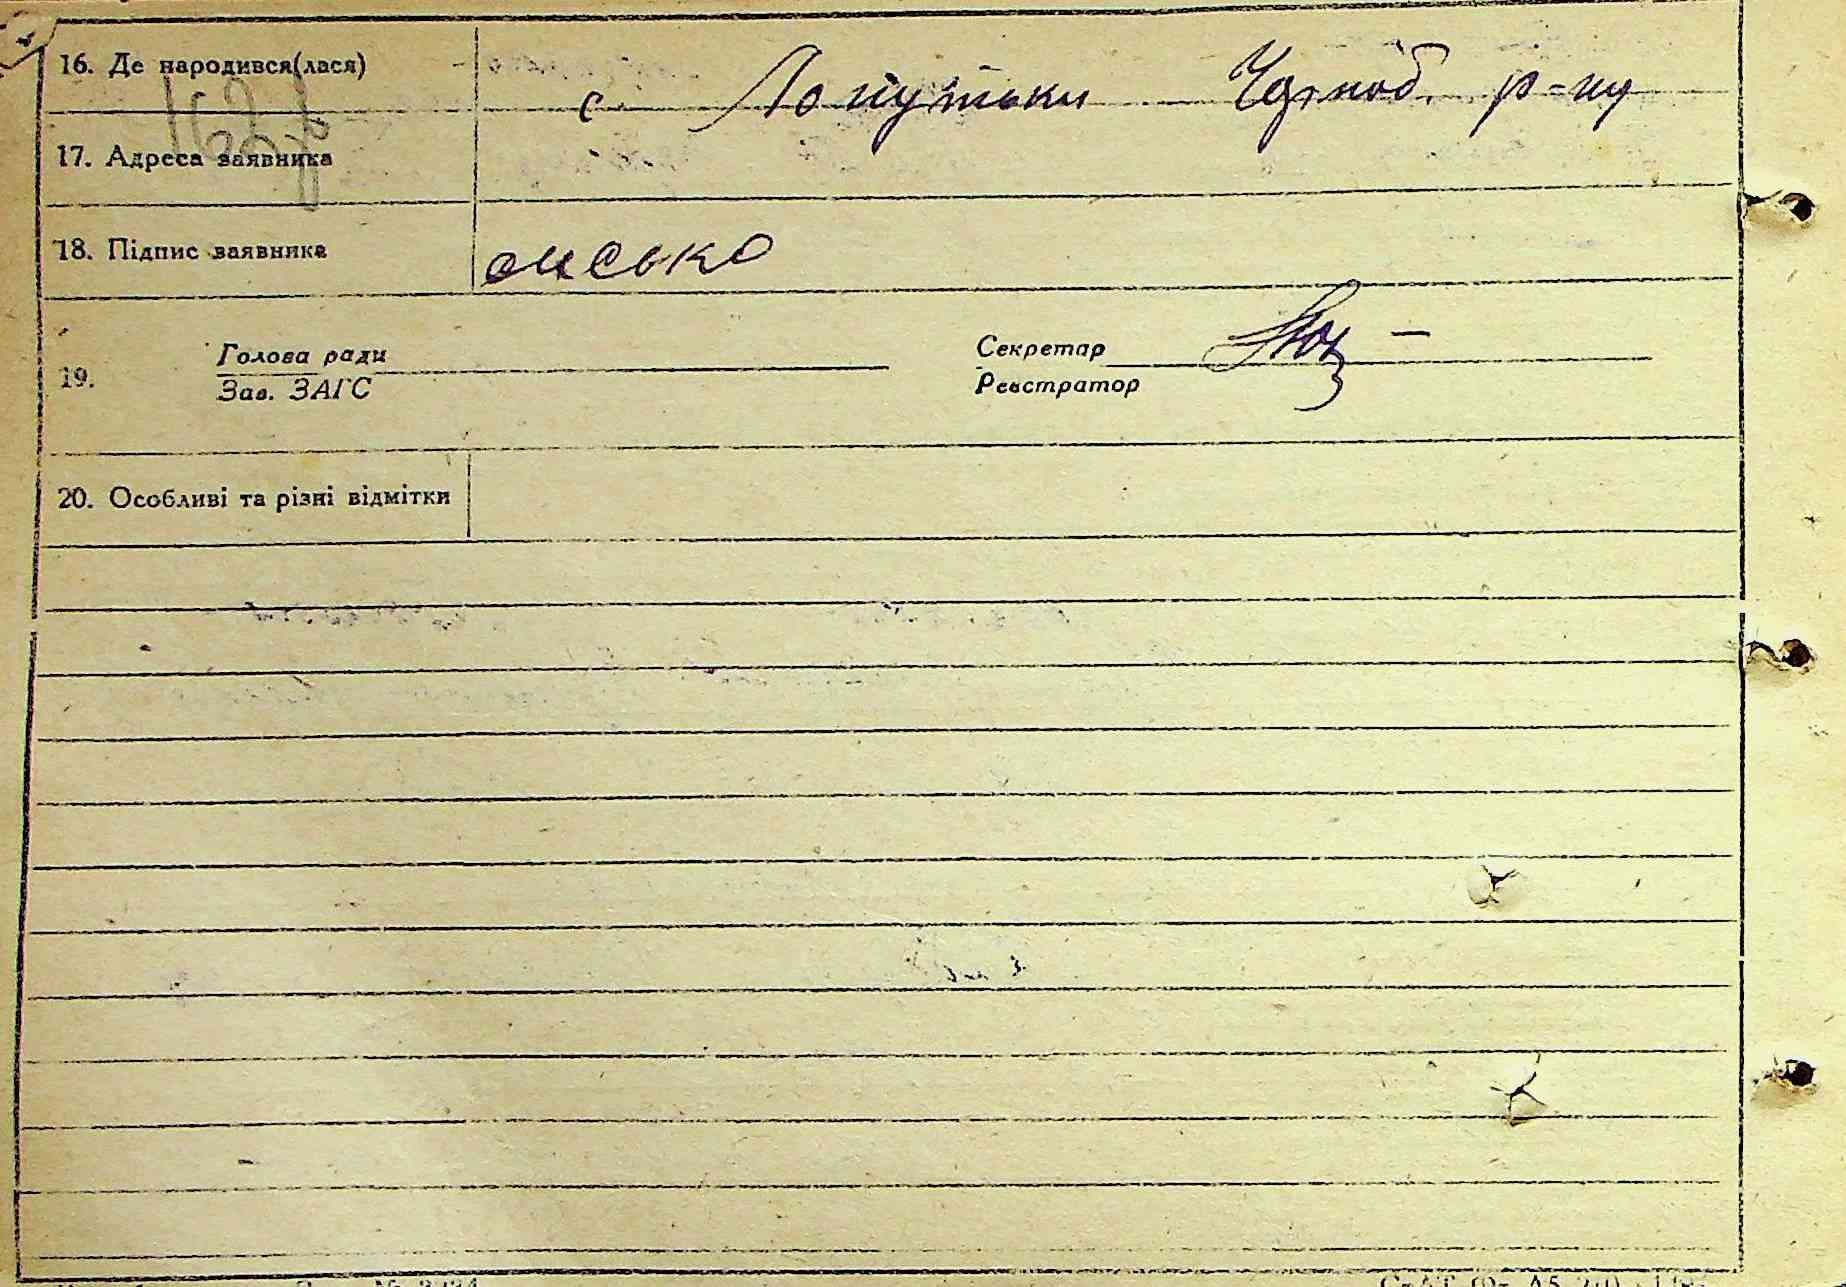 16. Де народився(лася) с. Лопутьки Чорноб. р-ну
17. Адреса заявника
18. Підпис заявника онсько
19. Голова ради Секретар
Зав. ЗАГС Реєстратор
20. Особливі та різні відмітки